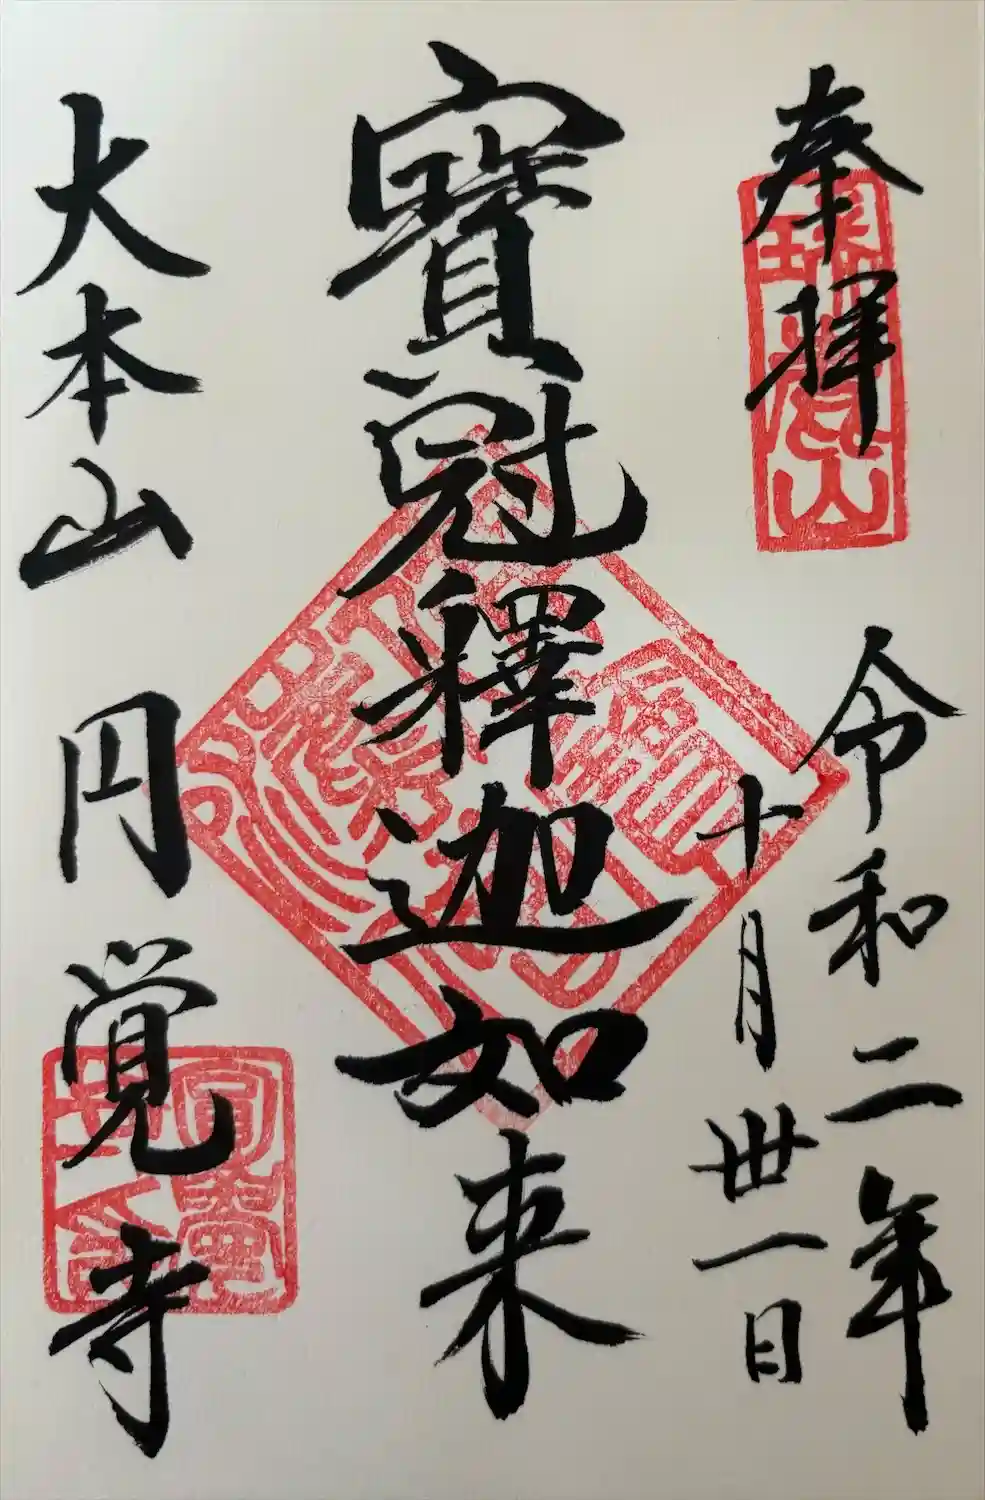 奉拝
令和二年
十月卅一日
寶冠釋迦如来
大本山 円覚寺
瑞鹿山